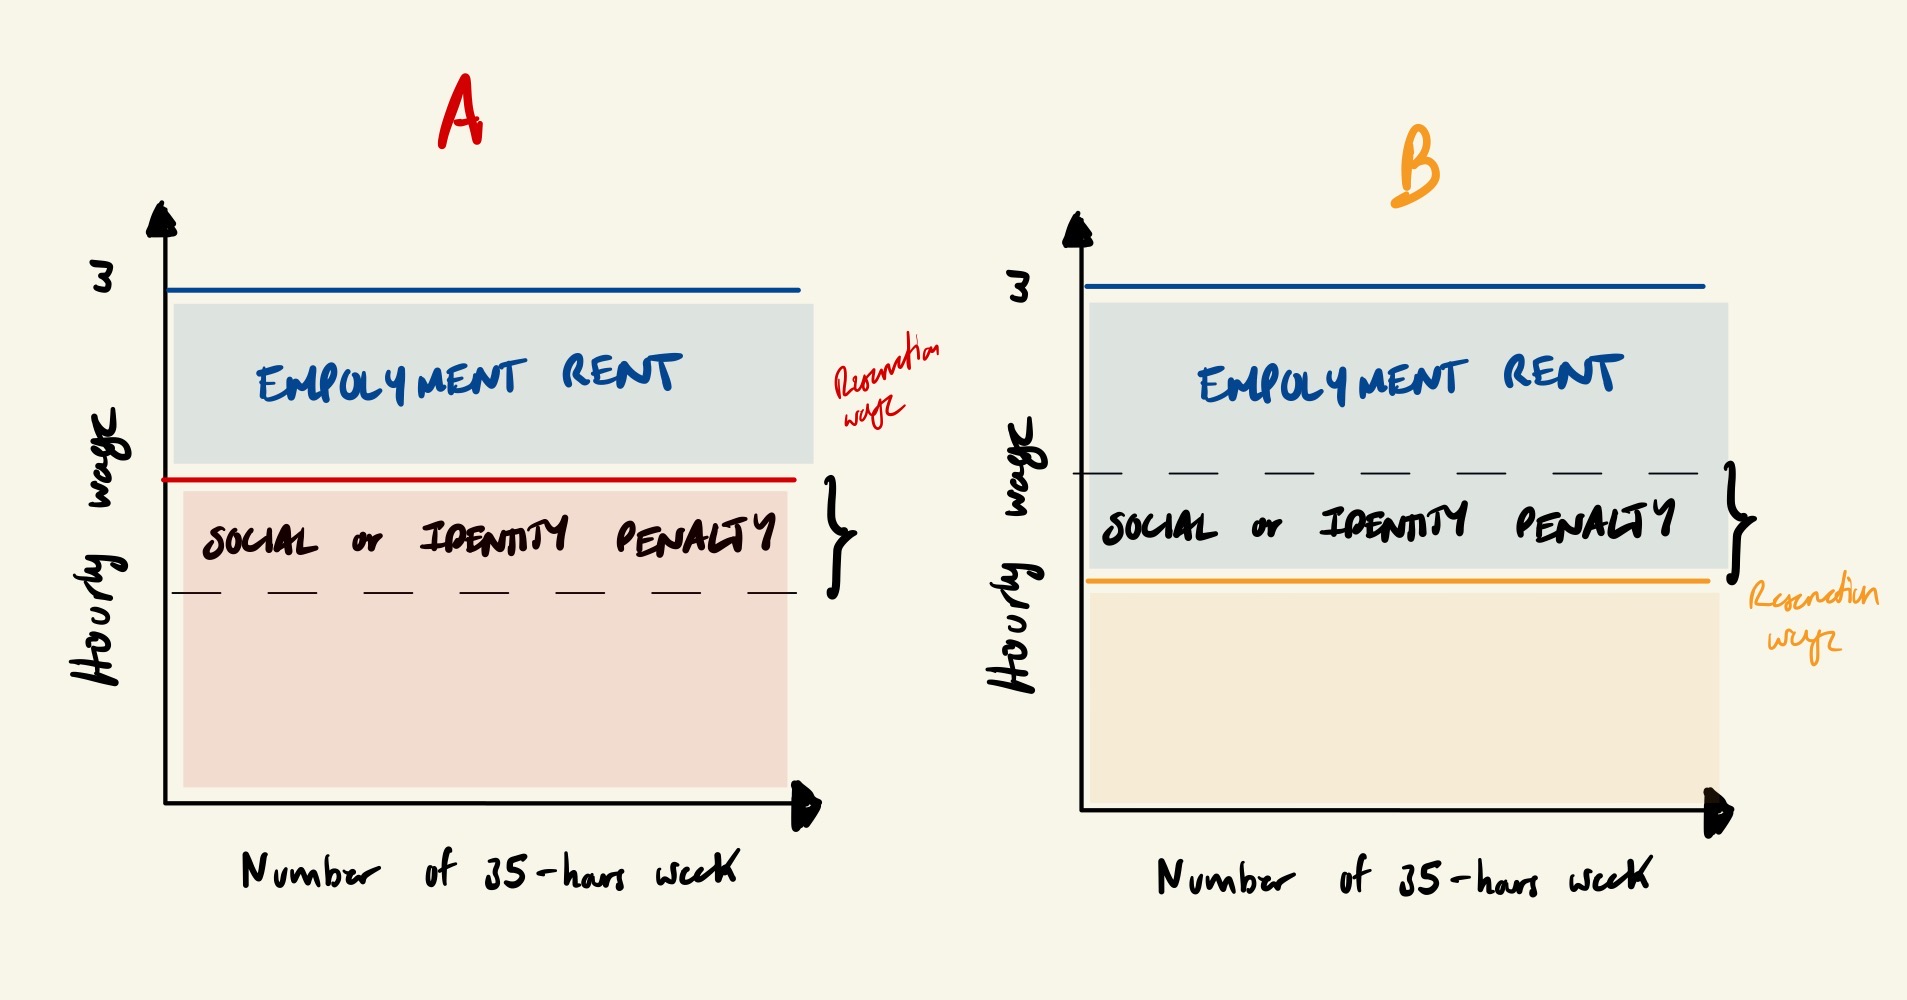 A
w
Hourly wage
EMPOLYMENT RENT
Reservation
wage
SOCIAL or IDENTITY PENALTY
Number of 35-hours week
B
w
Hourly wage
EMPOLYMENT RENT
SOCIAL or IDENTITY PENALTY
Reservation
wage
Number of 35-hours week